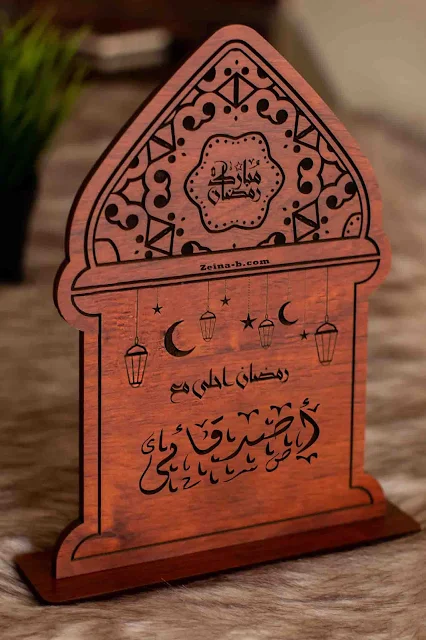 مبارك
رمضان
Zeina-b.com
رمضان احلى مع
أصدقائي